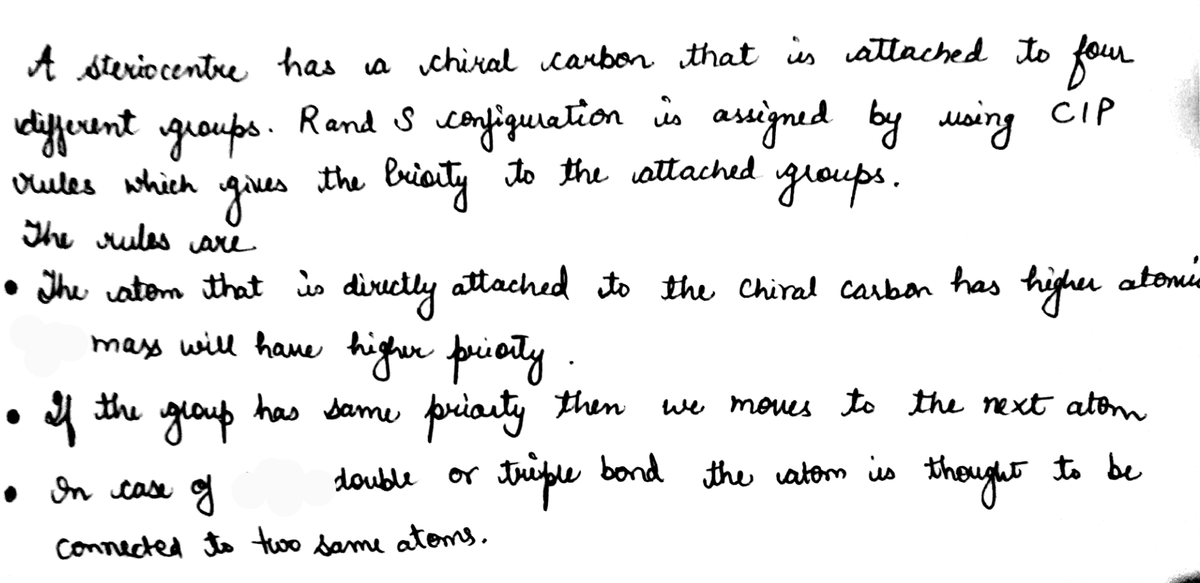 A steriocentre has a chiral carbon that is attached to four
different groups. R and S configuration is assigned by using CIP
rules which gives the Priority to the attached groups.
The rules are
• The atom that is directly attached to the chiral carbon has higher atomic
mass will have higher priority.
• If the group has same priority then we moves to the next atom
• In case of double or triple bond the atom is thought to be
connected to two same atoms.